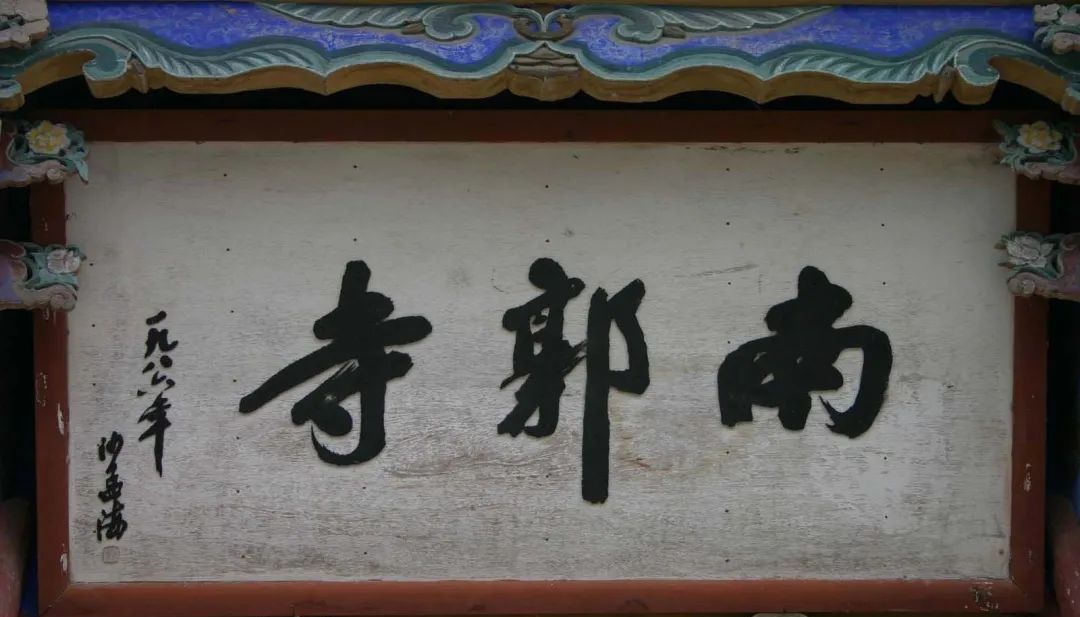 南郭寺
一九八六年
沙孟海